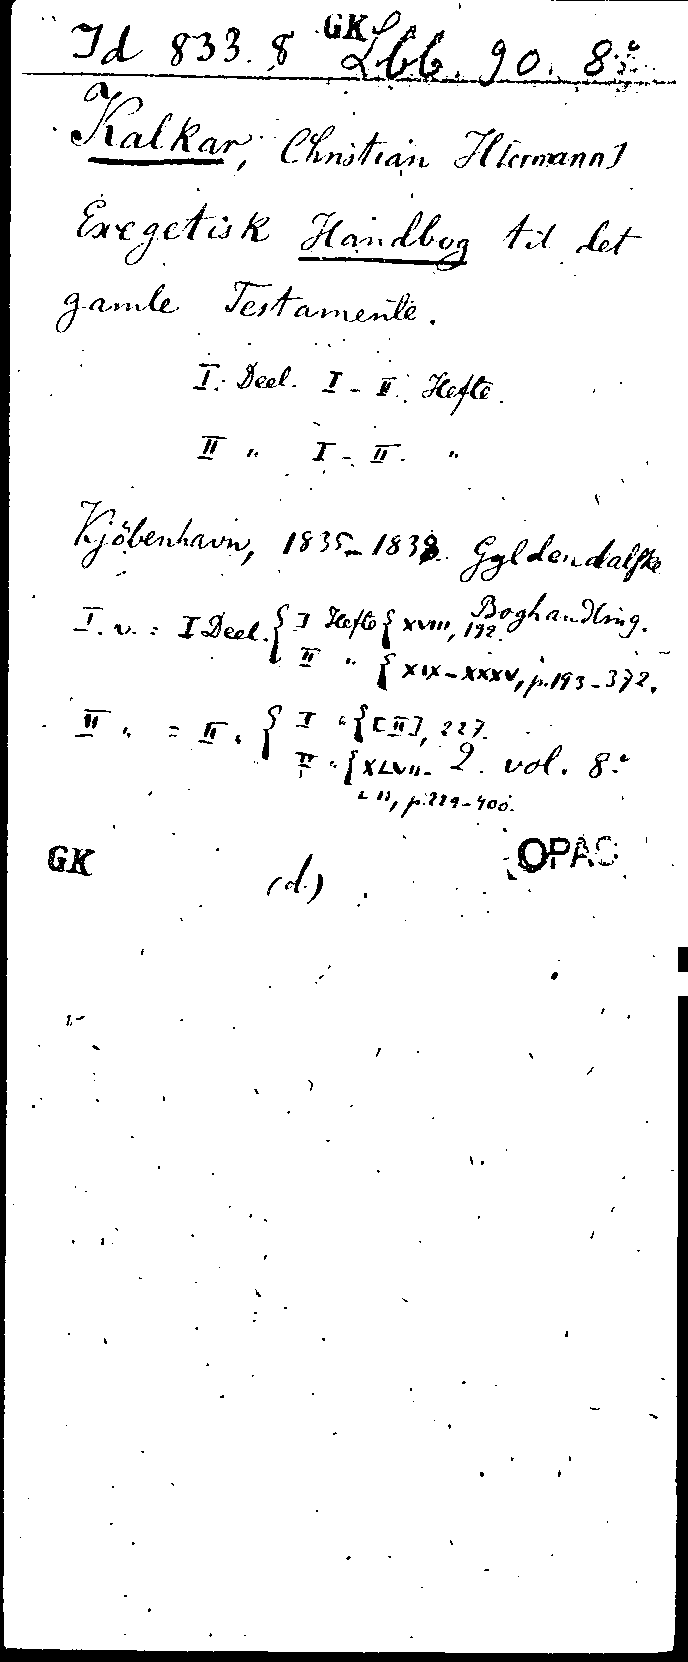 Id 833.8 GK Lbb. 90. 8:°
Kalkar, Christian H[ermann]
Exegetisk Handbog til det
gamle Testamente.
I. Deel. I - II. Hefte.
II " I - II. "
Kjöbenhavn, 1835-1838. Gyldendalske
Boghandling.
I. v. : I Deel. { I Hefte { XVIII, 192.
II " { XIX-XXXV, p.193-372.
II " = II " { I " { [II], 227.
II " { XLVII-
LII, p.229-400.
2. vol. 8:°
GK (d.) OPAC